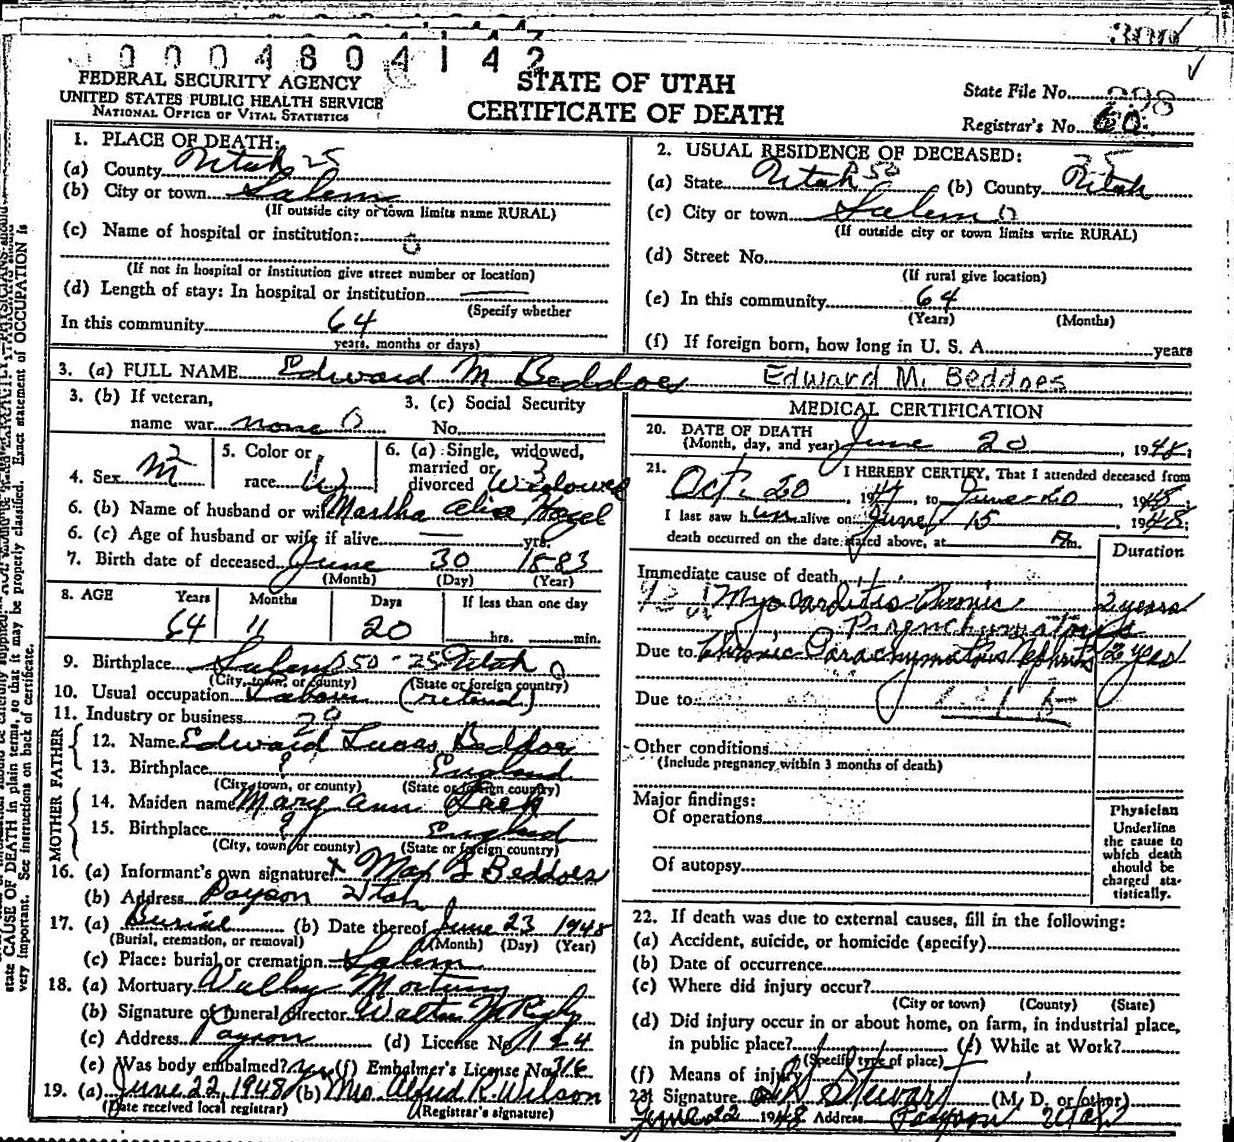 300
0004804142
FEDERAL SECURITY AGENCY
UNITED STATES PUBLIC HEALTH SERVICE
NATIONAL OFFICE OF VITAL STATISTICS
STATE OF UTAH
CERTIFICATE OF DEATH
State File No. 398
Registrar's No. 60
1. PLACE OF DEATH:
(a) County Utah 25
(b) City or town Salem
(If outside city or town limits name RURAL)
(c) Name of hospital or institution: 0
(If not in hospital or institution give street number or location)
(d) Length of stay: In hospital or institution —
(Specify whether
In this community 64
years, months or days)
2. USUAL RESIDENCE OF DECEASED:
(a) State Utah 50 (b) County Utah 25
(c) City or town Salem 0
(If outside city or town limits write RURAL)
(d) Street No.
(If rural give location)
(e) In this community 64
(Years) (Months)
(f) If foreign born, how long in U. S. A. years
3. (a) FULL NAME Edward M Beddoes Edward M. Beddoes
3. (b) If veteran, name war none 0
3. (c) Social Security No.
4. Sex M 2
5. Color or race W
6. (a) Single, widowed, married or divorced Widowed 3
6. (b) Name of husband or wife Martha Hazel
6. (c) Age of husband or wife if alive — yrs.
7. Birth date of deceased June 30 1883
(Month) (Day) (Year)
8. AGE Years Months Days If less than one day
64 11 20 hrs. min.
9. Birthplace Salem 50-25 Utah 0
(City, town, or county) (State or foreign country)
10. Usual occupation Labor (retired)
11. Industry or business
FATHER
12. Name Edward Lucas Beddoe
13. Birthplace ? England
(City, town, or county) (State or foreign country)
MOTHER
14. Maiden name Mary Ann
15. Birthplace ? England
(City, town or county) (State or foreign country)
16. (a) Informant's own signature x Max B Beddoes
(b) Address Payson Utah
17. (a) Burial (b) Date thereof June 23 1948
(Burial, cremation, or removal) (Month) (Day) (Year)
(c) Place: burial or cremation Salem
18. (a) Mortuary Mortuary
(b) Signature of funeral director Walter
(c) Address Payson (d) License No. 124
(e) Was body embalmed? yes (f) Embalmer's License No. 316
19. (a) June 22, 1948 (b) Mrs. Alfred R. Wilson
(Date received local registrar) (Registrar's signature)
MEDICAL CERTIFICATION
20. DATE OF DEATH
(Month, day, and year) June 20, 1948;
21. I HEREBY CERTIFY, That I attended deceased from
Oct. 20, 1947, to June 20 1948;
I last saw him alive on June 15, 1948;
death occurred on the date stated above, at m.
Duration
Immediate cause of death
Myocarditis Chronic 2 years
Parenchymatous
Due to Chronic Parachymatous Nephritis 2 years
Due to
Other conditions
(Include pregnancy within 3 months of death)
Major findings:
Of operations
Of autopsy
Physician
Underline
the cause to
which death
should be
charged sta-
tistically.
22. If death was due to external causes, fill in the following:
(a) Accident, suicide, or homicide (specify)
(b) Date of occurrence
(c) Where did injury occur?
(City or town) (County) (State)
(d) Did injury occur in or about home, on farm, in industrial place,
in public place? (e) While at Work?
(Specify type of place)
(f) Means of injury
23. Signature Stewart (M. D. or other)
June 22 1948 Address Payson Utah
state CAUSE OF DEATH in plain terms, so that it may be properly classified. Exact statement of OCCUPATION is
very important. See instructions on back of certificate.